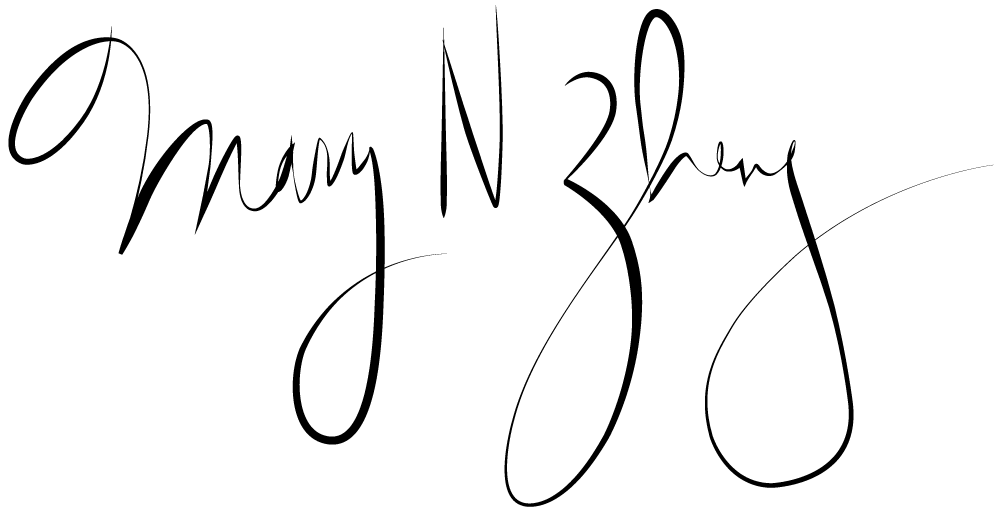 Mary N Zheng